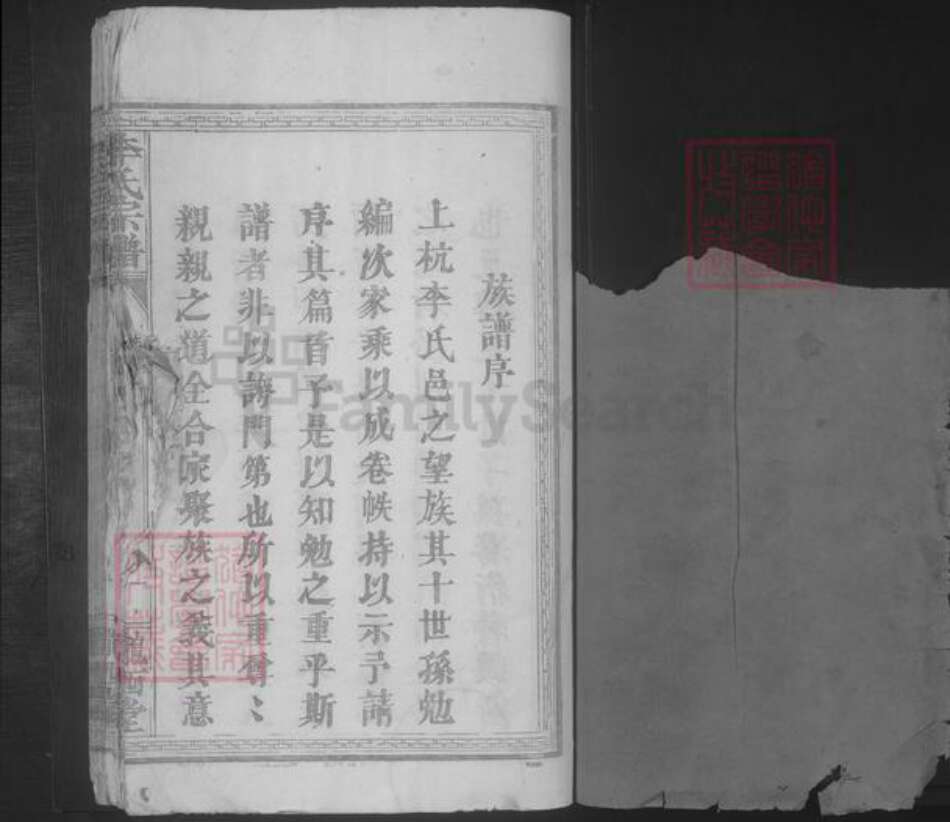 族譜序
上杭李氏邑之望族其十世孫勉
編次家乘以成卷帙持以示予請
序其篇首予是以知勉之重乎斯
譜者非以誇門第也所以重尊〻
親親之道全合宗聚族之義其意
李氏宗譜
隴西堂
FamilySearch